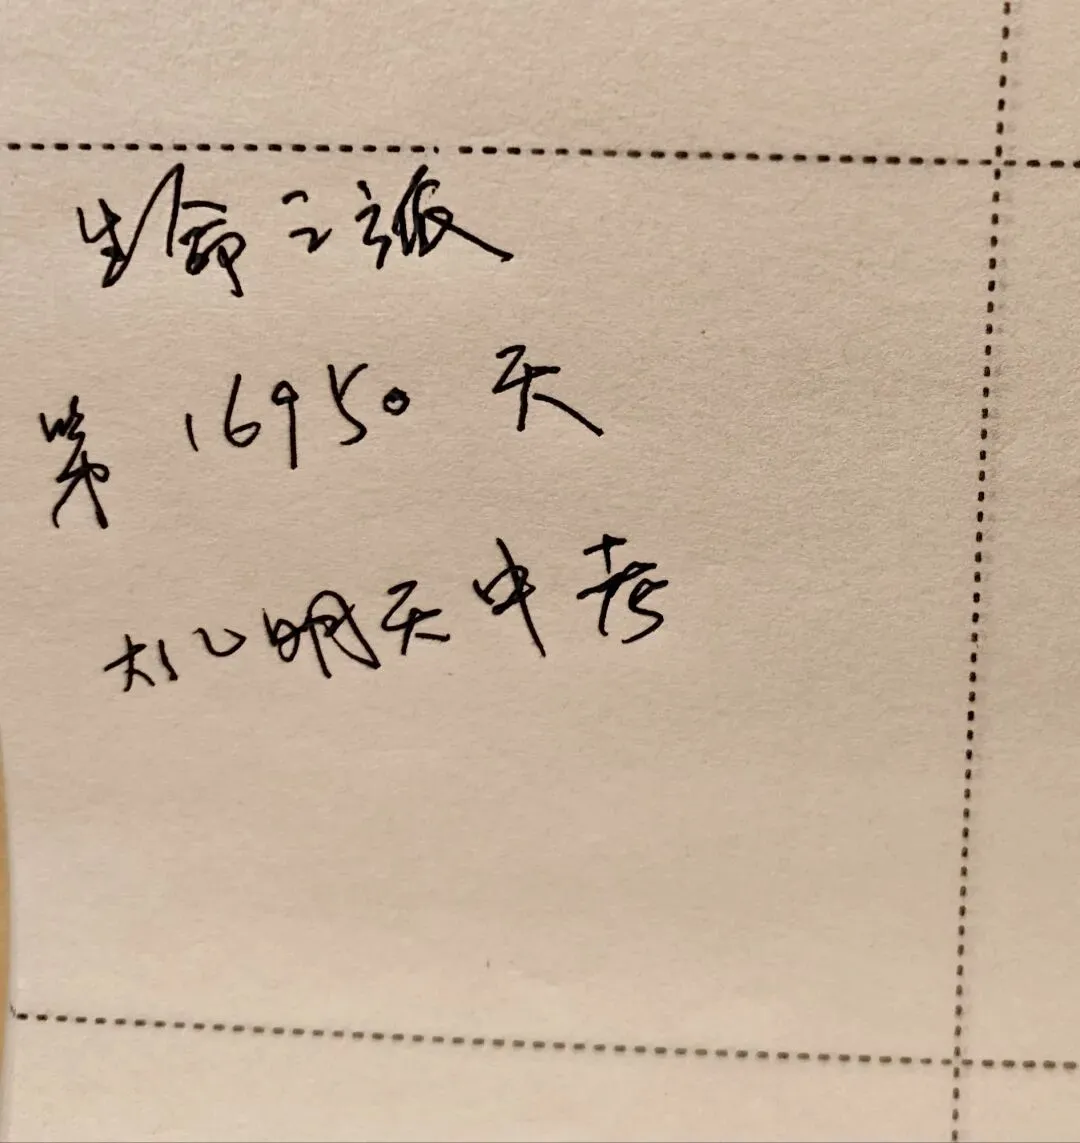 生命之旅
第 16950 天
明天中考